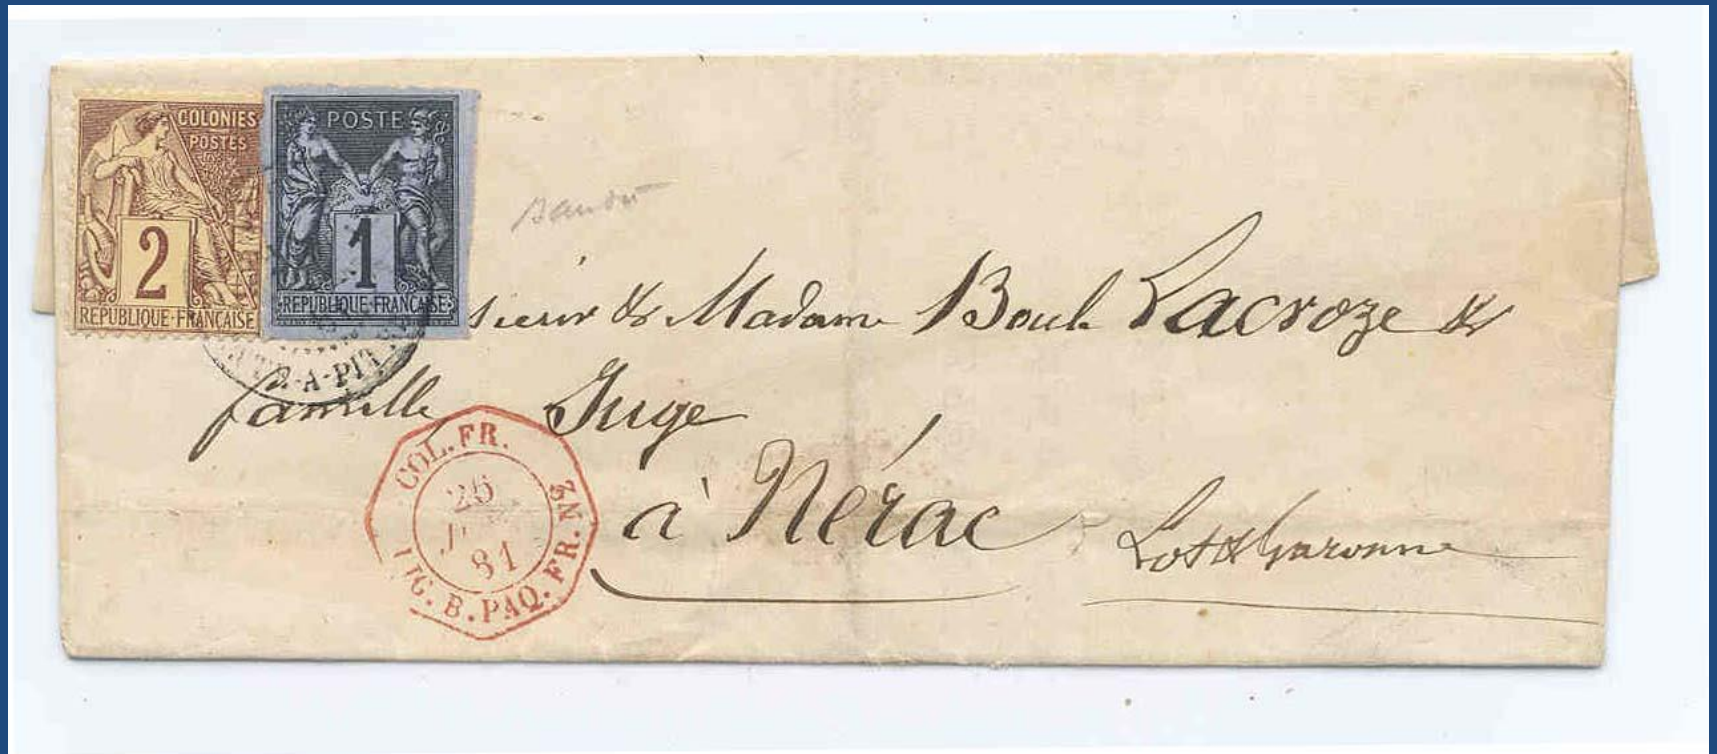 COLONIES
POSTES
2
REPUBLIQUE FRANCAISE
POSTE
1
REPUBLIQUE FRANCAISE
A-PIT
sieur & Madame Boué Lacroze &
famille Juge
à Nérac Lot & Garonne
COL. FR.
25
81
LIG. B. PAQ. FR. Nº2